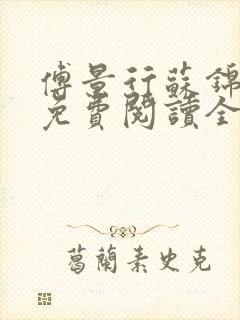 傅景行蘇錦
免費閱讀全
葛蘭素史克